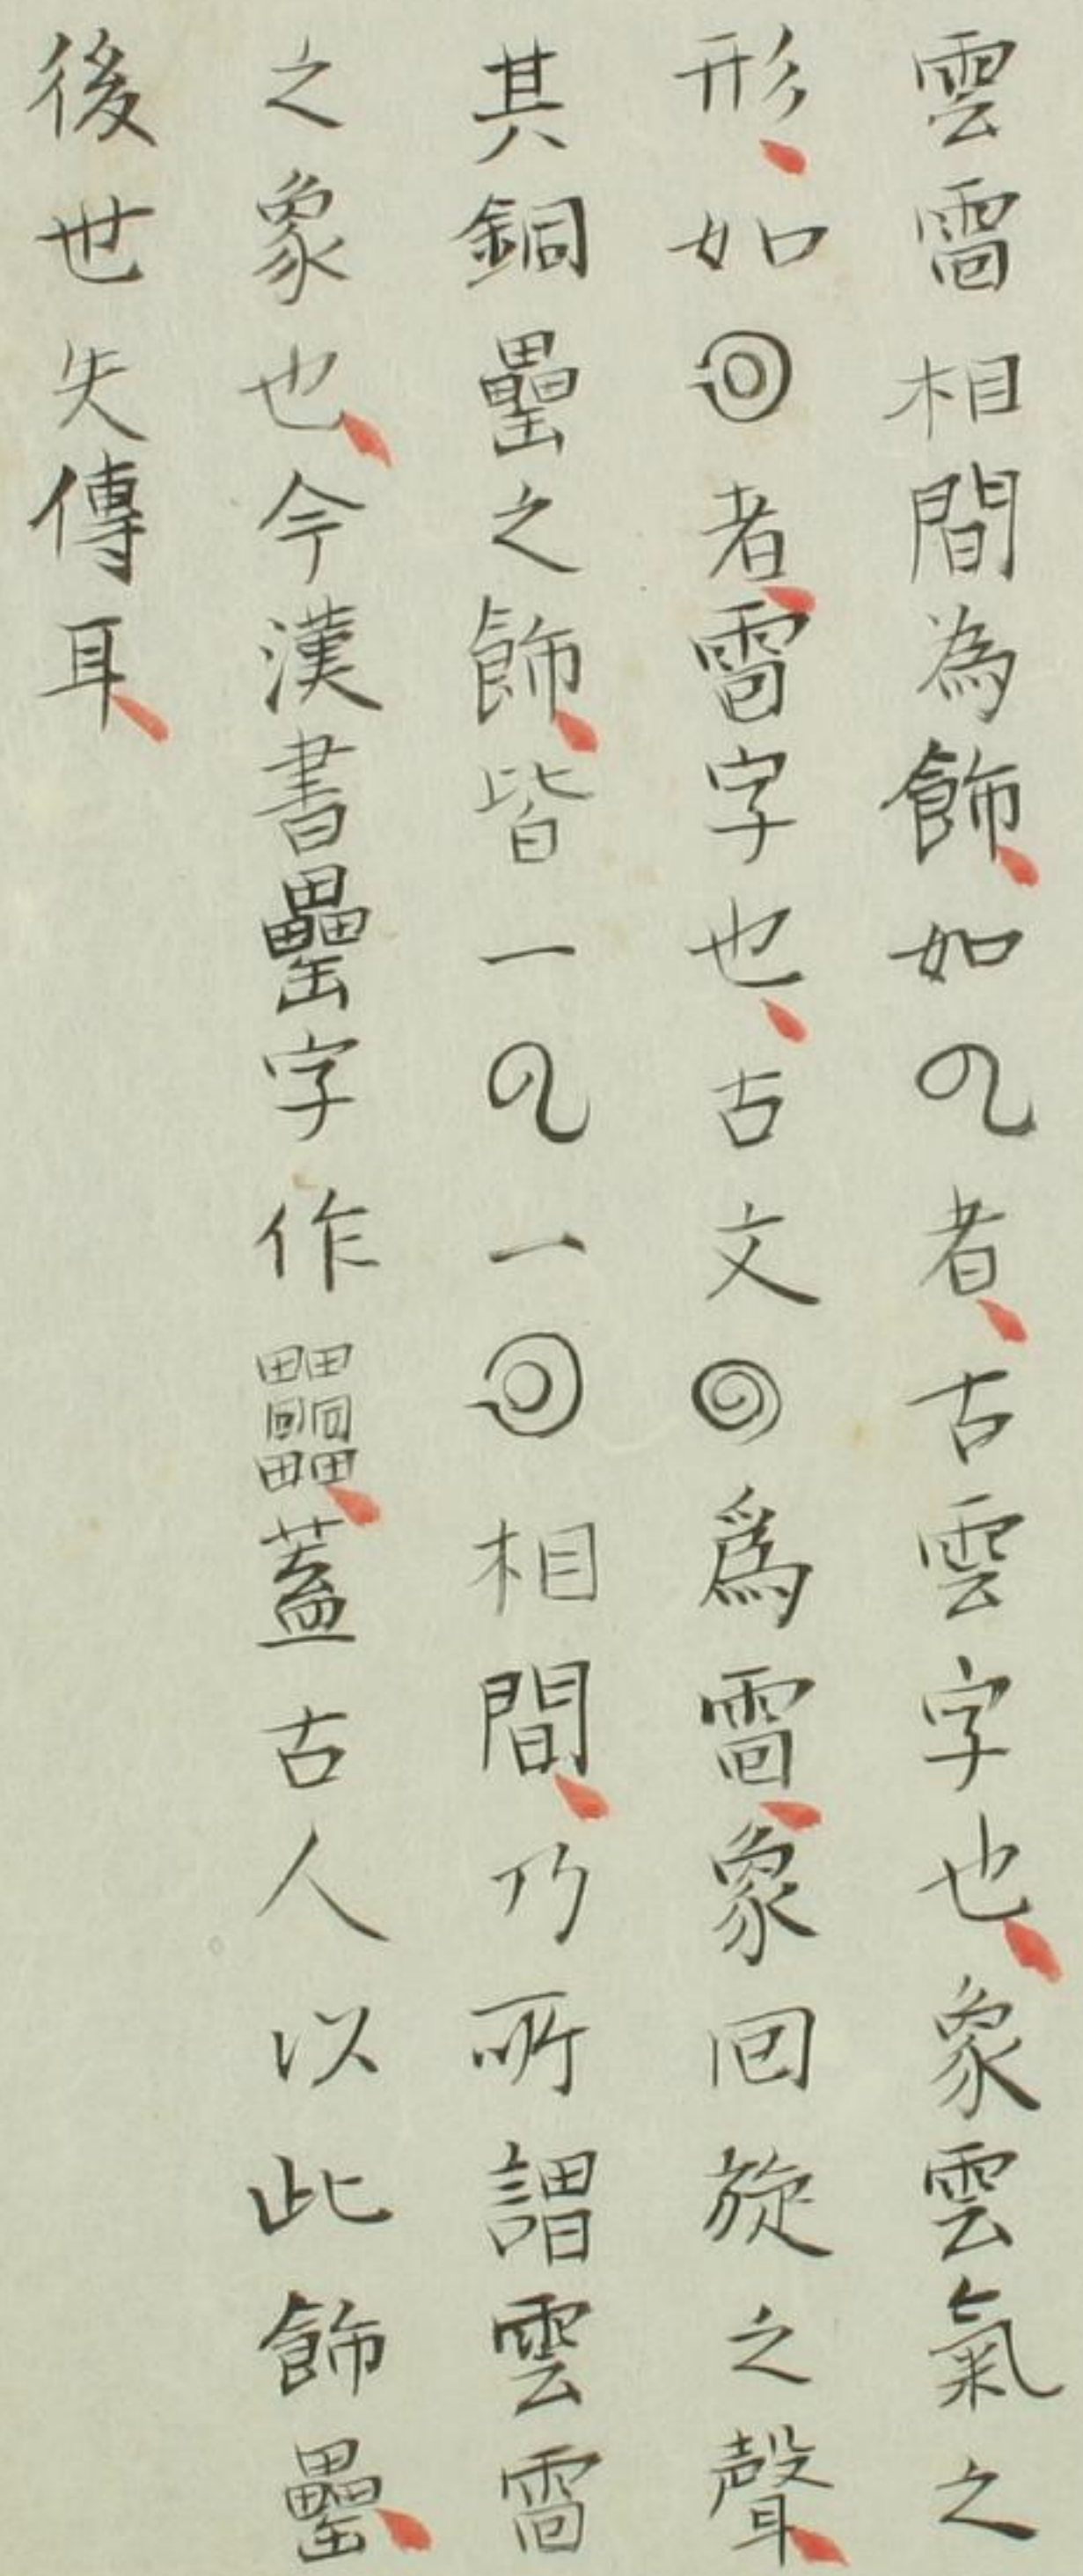 雲雷相間為飾、如者、古雲字也、象雲氣之
形、如者、雷字也、古文為雷、象回旋之聲、
其銅罍之飾、皆一一相間、乃所謂雲雷
之象也、今漢書罍字作、蓋古人以此飾罍、
後世失傳耳、